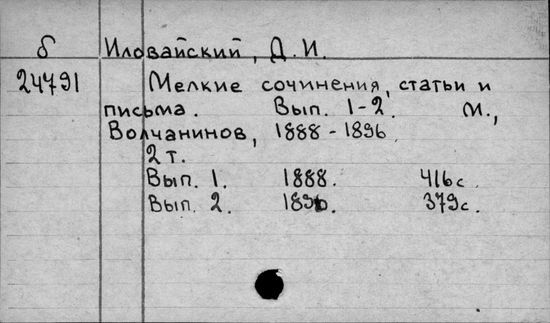 б Иловайский, Д. И.
24791 Мелкие сочинения, статьи и
письма. Вып. 1-2. М.,
Волчанинов, 1888-1896
2 т.
Вып. 1. 1888. 416с.
Вып. 2. 1896. 379с.